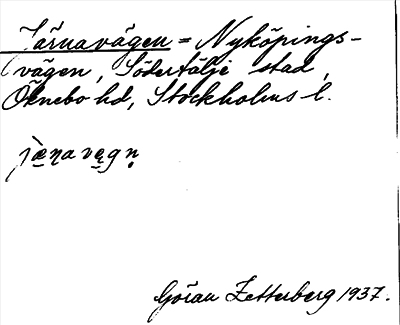 Järnavägen = Nyköpings-
vägen, Södertälje stad,
Öknebo hd, Stockholms l.
jæṇavęgṇ
Göran Zetterberg 1937.